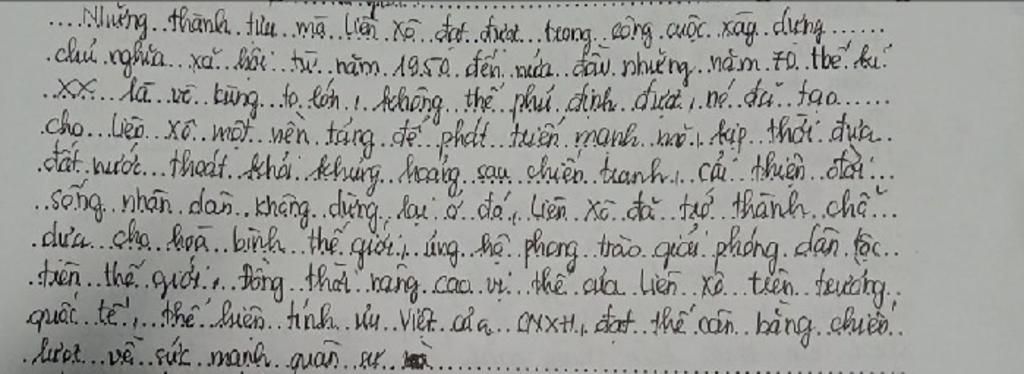 Những thành tựu mà Liên Xô đạt được trong công cuộc xây dựng
chủ nghĩa xã hội từ năm 1950 đến nửa đầu những năm 70 thế kỉ
XX là vô cùng to lớn, không thể phủ định được, nó đã tạo
cho Liên Xô một nền tảng để phát triển mạnh mẽ, kịp thời đưa
đất nước thoát khỏi khủng hoảng sau chiến tranh, cải thiện đời
sống nhân dân không dừng lại ở đó, Liên Xô đã trở thành chỗ
dựa cho hoà bình thế giới, ủng hộ phong trào giải phóng dân tộc
trên thế giới, Đồng thời nâng cao vị thế của Liên Xô trên trường
quốc tế, thể hiện tính ưu Việt của CNXH, đạt thế cân bằng chiến
lược về sức mạnh quân sự